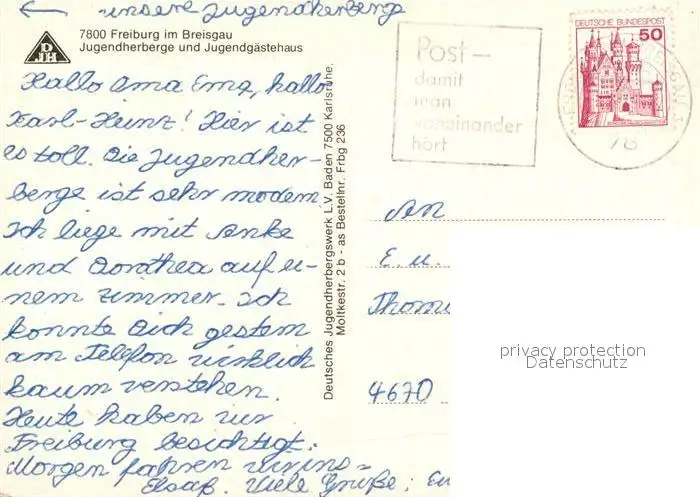 ← unsere Jugendherberge
7800 Freiburg im Breisgau
Jugendherberge und Jugendgästehaus
DJH
Hallo Oma Erna, hallo
Karl-Heinz! Hier ist
es toll. Die Jugendher-
berge ist sehr modern.
Ich liege mit Anke
und Dorothea auf ei-
nem Zimmer. Ich
konnte Dich gestern
am Telefon wirklich
kaum verstehen.
Heute haben wir
Freiburg besichtigt.
Morgen fahren wir ins
Elsaß. Viele Grüße:
Deutsches Jugendherbergswerk L.V. Baden 7500 Karlsruhe,
Moltkestr. 2 b - as Bestellnr. Frbg 236
Post-
damit
man
voneinander
hört
DEUTSCHE BUNDESPOST
50
An
E. u.
4670
privacy protection
Datenschutz